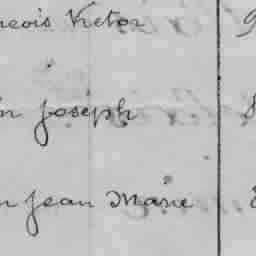 ncois Victor
n Joseph
n Jean Marie